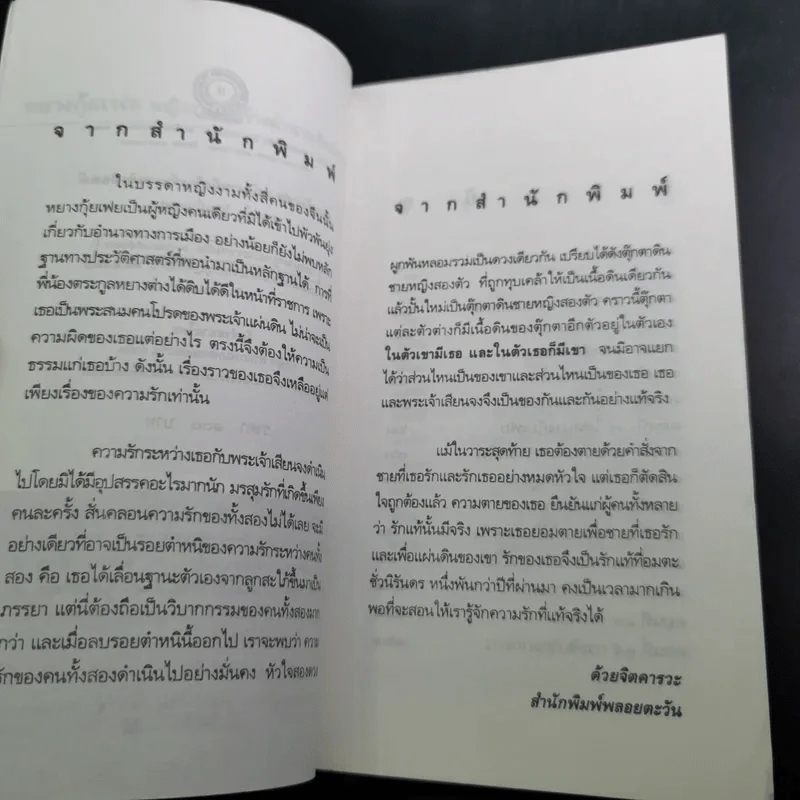 จากสำนักพิมพ์
ในบรรดาหญิงงามทั้งสี่คนของจีนนั้น
หยางกุ้ยเฟยเป็นผู้หญิงคนเดียวที่มิได้เข้าไปพัวพันยุ่ง
เกี่ยวกับอำนาจทางการเมือง อย่างน้อยก็ยังไม่พบหลัก
ฐานทางประวัติศาสตร์ที่พอนำมาเป็นหลักฐานได้ การที่
พี่น้องตระกูลหยางต่างได้ดิบได้ดีในหน้าที่ราชการ เพราะ
เธอเป็นพระสนมคนโปรดของพระเจ้าแผ่นดิน ไม่น่าจะเป็น
ความผิดของเธอแต่อย่างไร ตรงนี้จึงต้องให้ความเป็น
ธรรมแก่เธอบ้าง ดังนั้น เรื่องราวของเธอจึงเหลืออยู่แต่
เพียงเรื่องของความรักเท่านั้น
ความรักระหว่างเธอกับพระเจ้าเสียนจงดำเนิน
ไปโดยมิได้มีอุปสรรคอะไรมากนัก มรสุมรักที่เกิดขึ้นเพียง
คนละครั้ง สั่นคลอนความรักของทั้งสองไม่ได้เลย จะมี
อย่างเดียวที่อาจเป็นรอยตำหนิของความรักระหว่างคนทั้ง
สอง คือ เธอได้เลื่อนฐานะตัวเองจากลูกสะใภ้ขึ้นมาเป็น
ภรรยา แต่นี่ต้องถือเป็นวิบากกรรมของคนทั้งสองมาก
กว่า และเมื่อลบรอยตำหนินี้ออกไป เราจะพบว่า ความ
รักของคนทั้งสองดำเนินไปอย่างมั่นคง หัวใจสองดวง
จากสำนักพิมพ์
ผูกพันหลอมรวมเป็นดวงเดียวกัน เปรียบได้ดังตุ๊กตาดิน
ชายหญิงสองตัว ที่ถูกทุบเคล้าให้เป็นเนื้อดินเดียวกัน
แล้วปั้นใหม่เป็นตุ๊กตาดินชายหญิงสองตัว คราวนี้ตุ๊กตา
แต่ละตัวต่างก็มีเนื้อดินของตุ๊กตาอีกตัวอยู่ในตัวเอง
ในตัวเขามีเธอ และในตัวเธอก็มีเขา จนมิอาจแยก
ได้ว่าส่วนไหนเป็นของเขาและส่วนไหนเป็นของเธอ เธอ
และพระเจ้าเสียนจงจึงเป็นของกันและกันอย่างแท้จริง
แม้ในวาระสุดท้าย เธอต้องตายด้วยคำสั่งจาก
ชายที่เธอรักและรักเธออย่างหมดหัวใจ แต่เธอก็ตัดสิน
ใจถูกต้องแล้ว ความตายของเธอ ยืนยันแก่ผู้คนทั้งหลาย
ว่า รักแท้นั้นมีจริง เพราะเธอยอมตายเพื่อชายที่เธอรัก
และเพื่อแผ่นดินของเขา รักของเธอจึงเป็นรักแท้ที่อมตะ
ชั่วนิรันดร หนึ่งพันกว่าปีที่ผ่านมา คงเป็นเวลามากเกิน
พอที่จะสอนให้เรารู้จักความรักที่แท้จริงได้
ด้วยจิตคารวะ
สำนักพิมพ์พลอยตะวัน